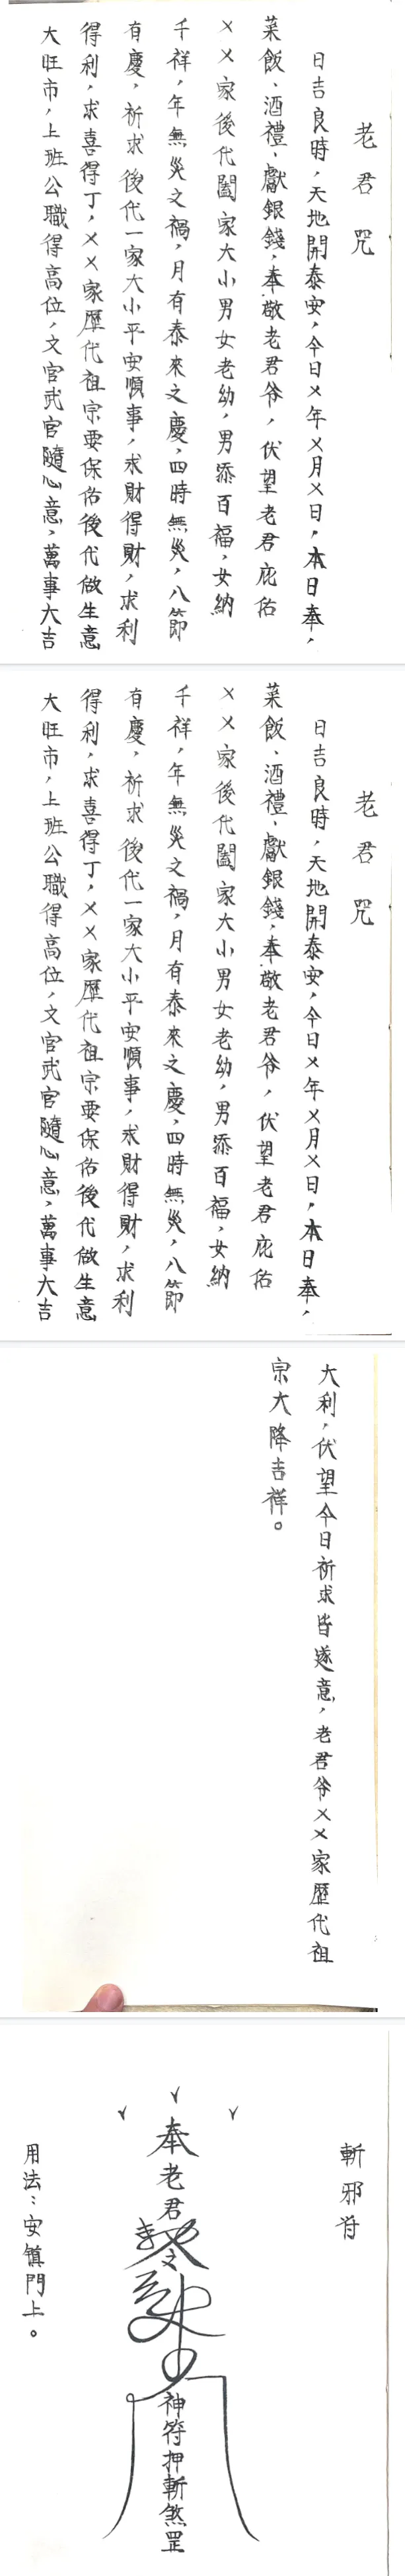 老君咒
日吉良時，天地開泰安，今日×年×月×日，本日奉，
菜飯、酒禮、獻銀錢，奉敬老君爷，伏望老君庇佑
××家後代闔家大小男女老幼，男添百福，女納
千祥，年無災之禍，月有泰來之慶，四時無災，八節
有慶，祈求後代一家大小平安順事，求財得財，求利
得利，求喜得丁，××家歷代祖宗要保佑後代做生意
大旺市，上班公職得高位，文官武官隨心意，萬事大吉
老君咒
日吉良時，天地開泰安，今日×年×月×日，本日奉，
菜飯、酒禮、獻銀錢，奉敬老君爷，伏望老君庇佑
××家後代闔家大小男女老幼，男添百福，女納
千祥，年無災之禍，月有泰來之慶，四時無災，八節
有慶，祈求後代一家大小平安順事，求財得財，求利
得利，求喜得丁，××家歷代祖宗要保佑後代做生意
大旺市，上班公職得高位，文官武官隨心意，萬事大吉
大利，伏望今日祈求皆遂意，老君爷××家歷代祖
宗大降吉祥。
斬邪符
奉老君
神符押斬煞罡
用法：安鎮門上。